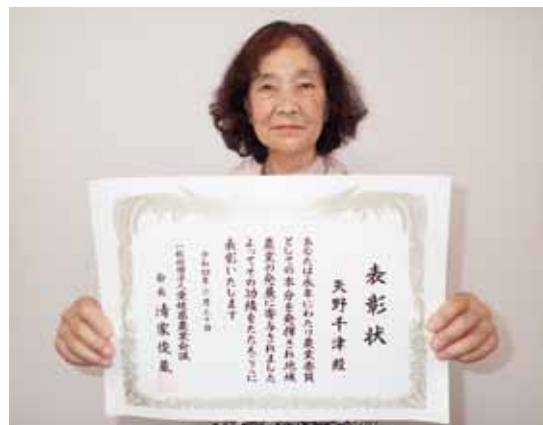 表彰状
矢野千津殿
あなたは永年にわたり農業委員
としての本分を発揮され地域
農業の発展に寄与されました
よってその功績をたたえここに
表彰いたします
令和四年
一般社団法人愛媛県農業会議
会長 清家俊蔵